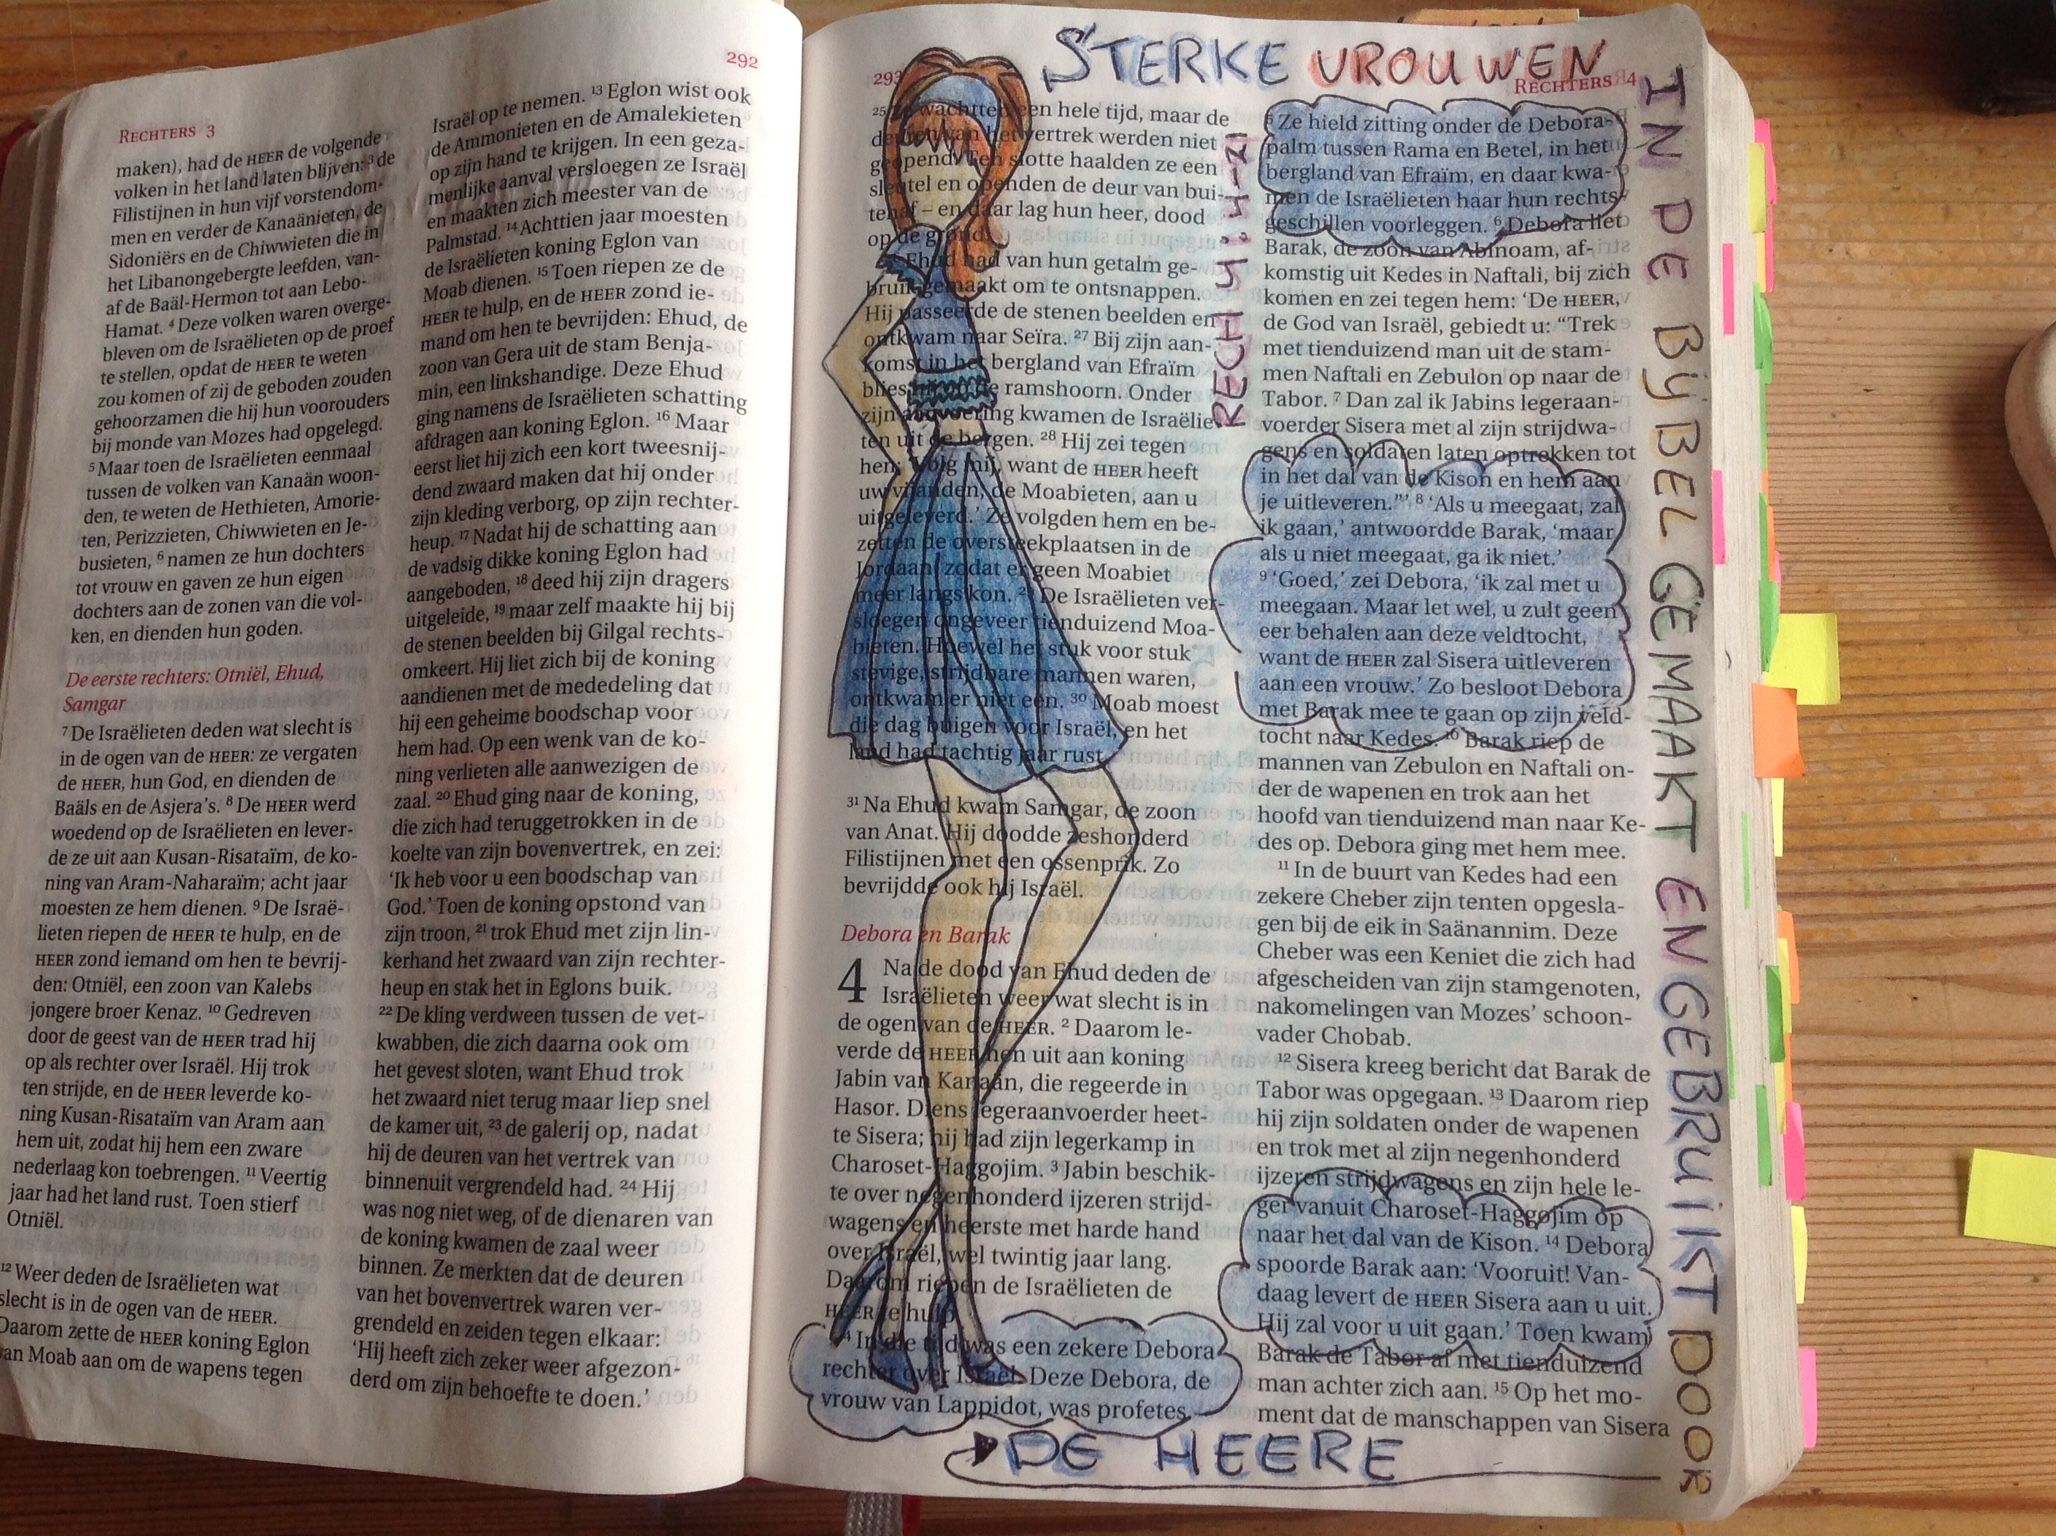 292
RECHTERS 3
maken), had de HEER de volgende
volken in het land laten blijven: ³ de
Filistijnen in hun vijf vorstendom-
men en verder de Kanaänieten, de
Sidoniërs en de Chiwwieten die in
het Libanongebergte leefden, van-
af de Baäl-Hermon tot aan Lebo-
Hamat. ⁴ Deze volken waren overge-
bleven om de Israëlieten op de proef
te stellen, opdat de HEER te weten
zou komen of zij de geboden zouden
gehoorzamen die hij hun voorouders
bij monde van Mozes had opgelegd.
⁵ Maar toen de Israëlieten eenmaal
tussen de volken van Kanaän woon-
den, te weten de Hethieten, Amorie-
ten, Perizzieten, Chiwwieten en Je-
busieten, ⁶ namen ze hun dochters
tot vrouw en gaven ze hun eigen
dochters aan de zonen van die vol-
ken, en dienden hun goden.
De eerste rechters: Otniël, Ehud,
Samgar
⁷ De Israëlieten deden wat slecht is
in de ogen van de HEER: ze vergaten
de HEER, hun God, en dienden de
Baäls en de Asjera's. ⁸ De HEER werd
woedend op de Israëlieten en lever-
de ze uit aan Kusan-Risataïm, de ko-
ning van Aram-Naharaïm; acht jaar
moesten ze hem dienen. ⁹ De Israë-
lieten riepen de HEER te hulp, en de
HEER zond iemand om hen te bevrij-
den: Otniël, een zoon van Kalebs
jongere broer Kenaz. ¹⁰ Gedreven
door de geest van de HEER trad hij
op als rechter over Israël. Hij trok
ten strijde, en de HEER leverde ko-
ning Kusan-Risataïm van Aram aan
hem uit, zodat hij hem een zware
nederlaag kon toebrengen. ¹¹ Veertig
jaar had het land rust. Toen stierf
Otniël.
¹² Weer deden de Israëlieten wat
slecht is in de ogen van de HEER.
Daarom zette de HEER koning Eglon
van Moab aan om de wapens tegen
Israël op te nemen. ¹³ Eglon wist ook
de Ammonieten en de Amalekieten
op zijn hand te krijgen. In een geza-
menlijke aanval versloegen ze Israël
en maakten zich meester van de
Palmstad. ¹⁴ Achttien jaar moesten
de Israëlieten koning Eglon van
Moab dienen. ¹⁵ Toen riepen ze de
HEER te hulp, en de HEER zond ie-
mand om hen te bevrijden: Ehud, de
zoon van Gera uit de stam Benja-
min, een linkshandige. Deze Ehud
ging namens de Israëlieten schatting
afdragen aan koning Eglon. ¹⁶ Maar
eerst liet hij zich een kort tweesnij-
dend zwaard maken dat hij onder
zijn kleding verborg, op zijn rechter-
heup. ¹⁷ Nadat hij de schatting aan
de vadsig dikke koning Eglon had
aangeboden, ¹⁸ deed hij zijn dragers
uitgeleide, ¹⁹ maar zelf maakte hij bij
de stenen beelden bij Gilgal rechts-
omkeert. Hij liet zich bij de koning
aandienen met de mededeling dat
hij een geheime boodschap voor
hem had. Op een wenk van de ko-
ning verlieten alle aanwezigen de
zaal. ²⁰ Ehud ging naar de koning,
die zich had teruggetrokken in de
koelte van zijn bovenvertrek, en zei:
'Ik heb voor u een boodschap van
God.' Toen de koning opstond van
zijn troon, ²¹ trok Ehud met zijn lin-
kerhand het zwaard van zijn rechter-
heup en stak het in Eglons buik.
²² De kling verdween tussen de vet-
kwabben, die zich daarna ook om
het gevest sloten, want Ehud trok
het zwaard niet terug maar liep snel
de kamer uit, ²³ de galerij op, nadat
hij de deuren van het vertrek van
binnenuit vergrendeld had. ²⁴ Hij
was nog niet weg, of de dienaren van
de koning kwamen de zaal weer
binnen. Ze merkten dat de deuren
van het bovenvertrek waren ver-
grendeld en zeiden tegen elkaar:
'Hij heeft zich zeker weer afgezon-
derd om zijn behoefte te doen.'
STERKE VROUWEN
IN DE BIJBEL GEMAAKT EN GEBRUIKT DOOR
DE HEERE
293
RECHTERS 4
²⁵ Ze wachtten een hele tijd, maar de
deuren van het vertrek werden niet
geopend. Ten slotte haalden ze een
sleutel en openden de deur van bui-
tenaf – en daar lag hun heer, dood
op de grond.
²⁶ Ehud had van hun getalm ge-
bruik gemaakt om te ontsnappen.
Hij passeerde de stenen beelden en
ontkwam naar Seïra. ²⁷ Bij zijn aan-
komst in het bergland van Efraïm
blies hij op de ramshoorn. Onder
zijn aanvoering kwamen de Israëlie-
ten uit de bergen. ²⁸ Hij zei tegen
hen: 'Volg mij, want de HEER heeft
uw vijanden, de Moabieten, aan u
uitgeleverd.' Ze volgden hem en be-
zetten de oversteekplaatsen in de
Jordaan, zodat er geen Moabiet
meer langs kon. ²⁹ De Israëlieten ver-
sloegen ongeveer tienduizend Moa-
bieten. Hoewel het stuk voor stuk
stevige, strijdbare mannen waren,
ontkwam er niet een. ³⁰ Moab moest
die dag buigen voor Israël, en het
land had tachtig jaar rust.
³¹ Na Ehud kwam Samgar, de zoon
van Anat. Hij doodde zeshonderd
Filistijnen met een ossenprik. Zo
bevrijdde ook hij Israël.
Debora en Barak
4 Na de dood van Ehud deden de
Israëlieten weer wat slecht is in
de ogen van de HEER. ² Daarom le-
verde de HEER hen uit aan koning
Jabin van Kanaän, die regeerde in
Hasor. Diens legeraanvoerder heet-
te Sisera; hij had zijn legerkamp in
Charoset-Haggojim. ³ Jabin beschik-
te over negenhonderd ijzeren strijd-
wagens en heerste met harde hand
over Israël, wel twintig jaar lang.
Daarom riepen de Israëlieten de
HEER te hulp.
⁴ In die tijd was een zekere Debora
rechter over Israël. Deze Debora, de
vrouw van Lappidot, was profetes.
RECH 4:4-21
⁵ Ze hield zitting onder de Debora-
palm tussen Rama en Betel, in het
bergland van Efraïm, en daar kwa-
men de Israëlieten haar hun rechts-
geschillen voorleggen. ⁶ Debora liet
Barak, de zoon van Abinoam, af-
komstig uit Kedes in Naftali, bij zich
komen en zei tegen hem: 'De HEER,
de God van Israël, gebiedt u: "Trek
met tienduizend man uit de stam-
men Naftali en Zebulon op naar de
Tabor. ⁷ Dan zal ik Jabins legeraan-
voerder Sisera met al zijn strijdwa-
gens en soldaten laten optrekken tot
in het dal van de Kison en hem aan
je uitleveren."' ⁸ 'Als u meegaat, zal
ik gaan,' antwoordde Barak, 'maar
als u niet meegaat, ga ik niet.'
⁹ 'Goed,' zei Debora, 'ik zal met u
meegaan. Maar let wel, u zult geen
eer behalen aan deze veldtocht,
want de HEER zal Sisera uitleveren
aan een vrouw.' Zo besloot Debora
met Barak mee te gaan op zijn veld-
tocht naar Kedes. ¹⁰ Barak riep de
mannen van Zebulon en Naftali on-
der de wapenen en trok aan het
hoofd van tienduizend man naar Ke-
des op. Debora ging met hem mee.
¹¹ In de buurt van Kedes had een
zekere Cheber zijn tenten opgesla-
gen bij de eik in Saänannim. Deze
Cheber was een Keniet die zich had
afgescheiden van zijn stamgenoten,
nakomelingen van Mozes' schoon-
vader Chobab.
¹² Sisera kreeg bericht dat Barak de
Tabor was opgegaan. ¹³ Daarom riep
hij zijn soldaten onder de wapenen
en trok met al zijn negenhonderd
ijzeren strijdwagens en zijn hele le-
ger vanuit Charoset-Haggojim op
naar het dal van de Kison. ¹⁴ Debora
spoorde Barak aan: 'Vooruit! Van-
daag levert de HEER Sisera aan u uit.
Hij zal voor u uit gaan.' Toen kwam
Barak de Tabor af met tienduizend
man achter zich aan. ¹⁵ Op het mo-
ment dat de manschappen van Sisera